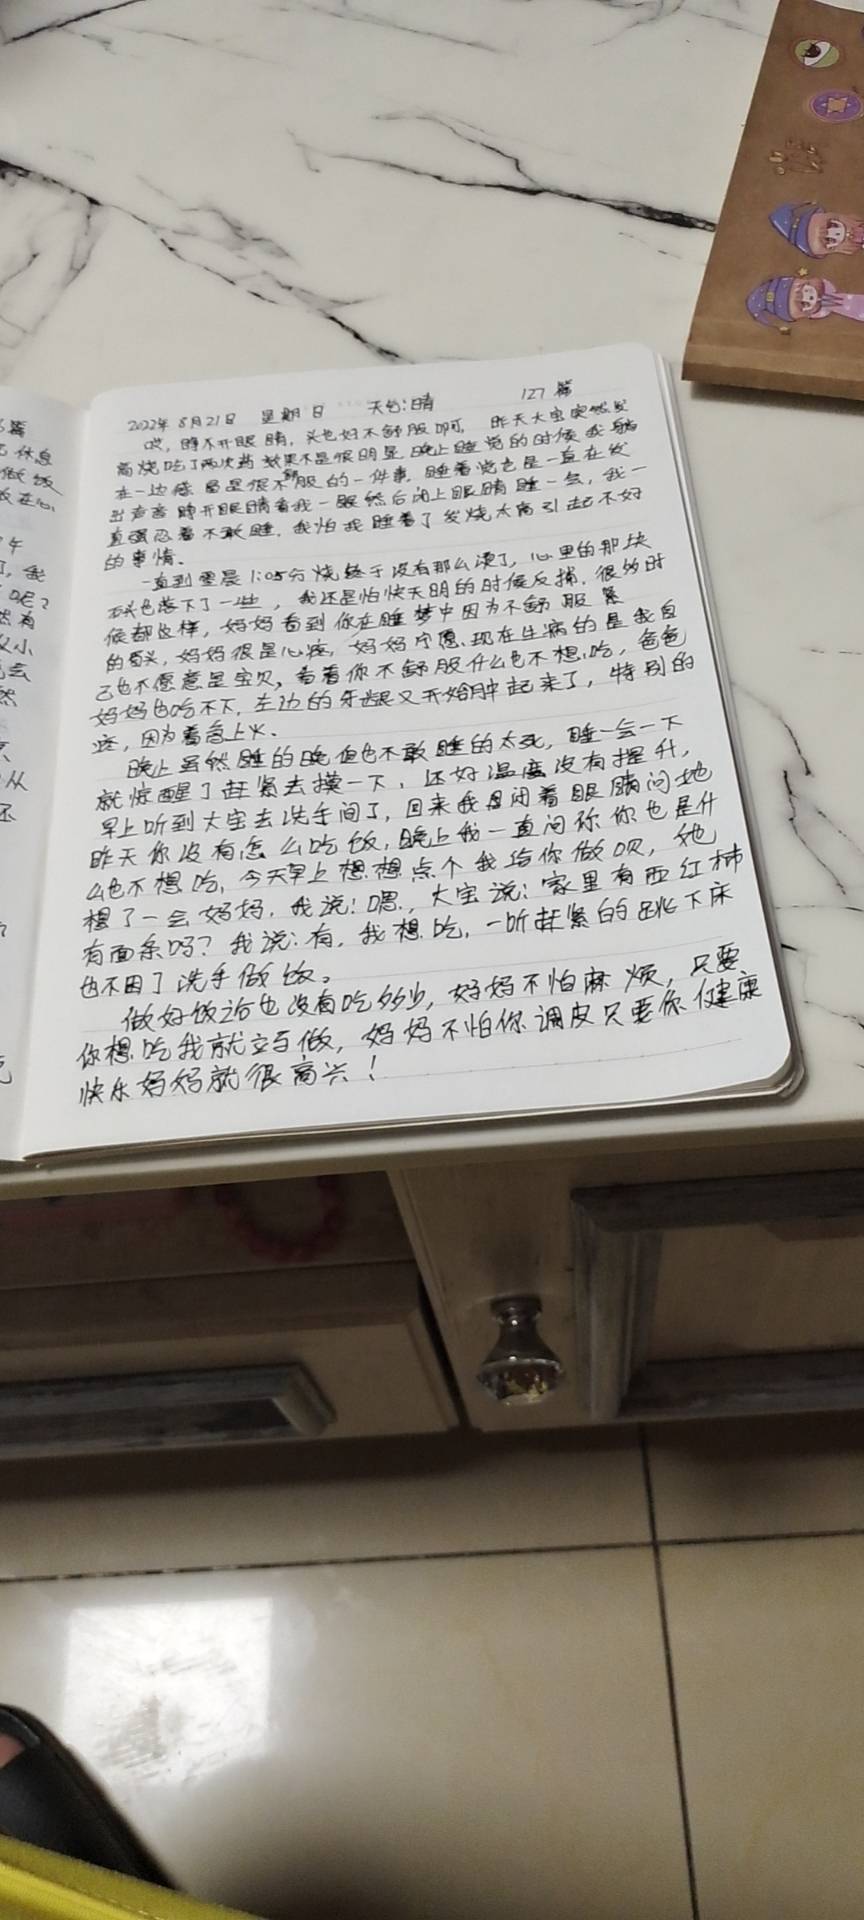 2022年8月21日 星期日 天气:晴 127篇
哎,睁不开眼睛,头也好不舒服啊,昨天大宝突然发
高烧吃了两次药效果不是很明显,晚上睡觉的时候我躺
在一边感 是很不舒服的一件事,睡着觉也是一直在发
出声音睁开眼睛看我一眼然后闭上眼睛睡一会,我一
直强忍着不敢睡,我怕我睡着了发烧太高引起不好
的事情。
一直到零晨1:05分烧终于没有那么烫了,心里的那块
石头也落下了一些,我还是怕快天明的时候反 ,很多时
候都这样,妈妈看到你在睡梦中因为不舒服紧
的眉头,妈妈很是心疼,妈妈宁愿现在生病的是我自
己也不愿意是宝贝,看着你不舒服什么也不想吃,爸爸
妈妈也吃不下,左边的牙龈又开始肿起来了,特别的
疼,因为着急上火.
晚上虽然睡的晚但也不敢睡的太死,睡一会一下
就惊醒了赶紧去摸一下,还好温度没有提升,
早上听到大宝去洗手间了,回来我 闭着眼睛问她
昨天你没有怎么吃饭,晚上我一直问你你也是什
么也不想吃,今天早上想想点个我给你做呗,她
想了一会妈妈,我说:嗯,大宝说:家里有西红柿
有面条吗?我说:有,我想吃,一听赶紧的跳下床
也不困了洗手做饭。
做好饭后也没有吃多少,好妈不怕麻烦,只要
你想吃我就立马做,妈妈不怕你调皮只要你健康
快乐妈妈就很高兴!